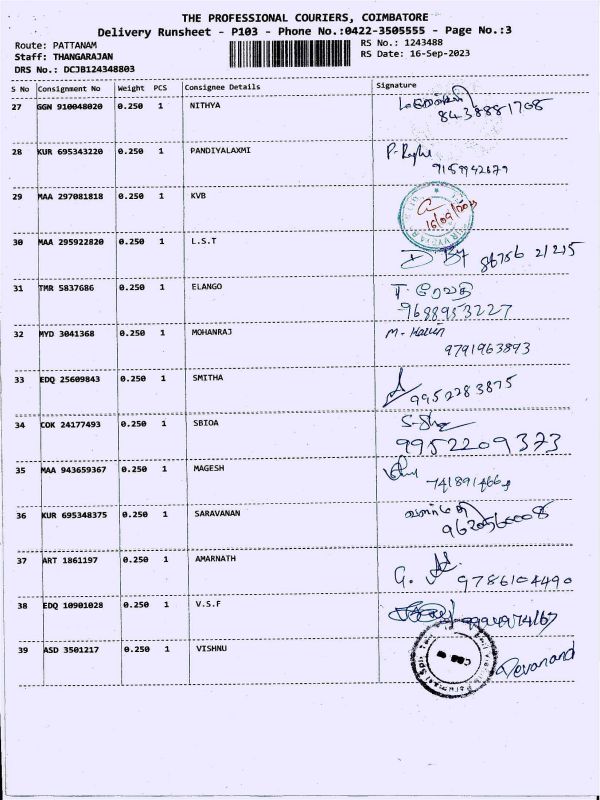 THE PROFESSIONAL COURIERS, COIMBATORE
Delivery Runsheet - P103 - Phone No.:0422-3505555 - Page No.:3
Route: PATTANAM
Staff: THANGARAJAN
DRS No.: DCJB124348803
RS No.: 1243488
RS Date: 16-Sep-2023
S No Consignment No Weight PCS Consignee Details Signature
27 GGN 910048020 0.250 1 NITHYA
8438881708
28 KUR 695343220 0.250 1 PANDIYALAXMI P-
29 MAA 297081818 0.250 1 KVB
16/09/2023
30 MAA 295922820 0.250 1 L.S.T
86756 21215
31 TMR 5837686 0.250 1 ELANGO T. ரேவதி
9688953227
32 MYD 3041368 0.250 1 MOHANRAJ M-
9791963893
33 EDQ 25609843 0.250 1 SMITHA
9952283875
34 COK 24177493 0.250 1 SBIOA
9952209373
35 MAA 943659367 0.250 1 MAGESH
36 KUR 695348375 0.250 1 SARAVANAN
37 ART 1861197 0.250 1 AMARNATH G.
9786104490
38 EDQ 10901028 0.250 1 V.S.F
39 ASD 3501217 0.250 1 VISHNU
Devanand